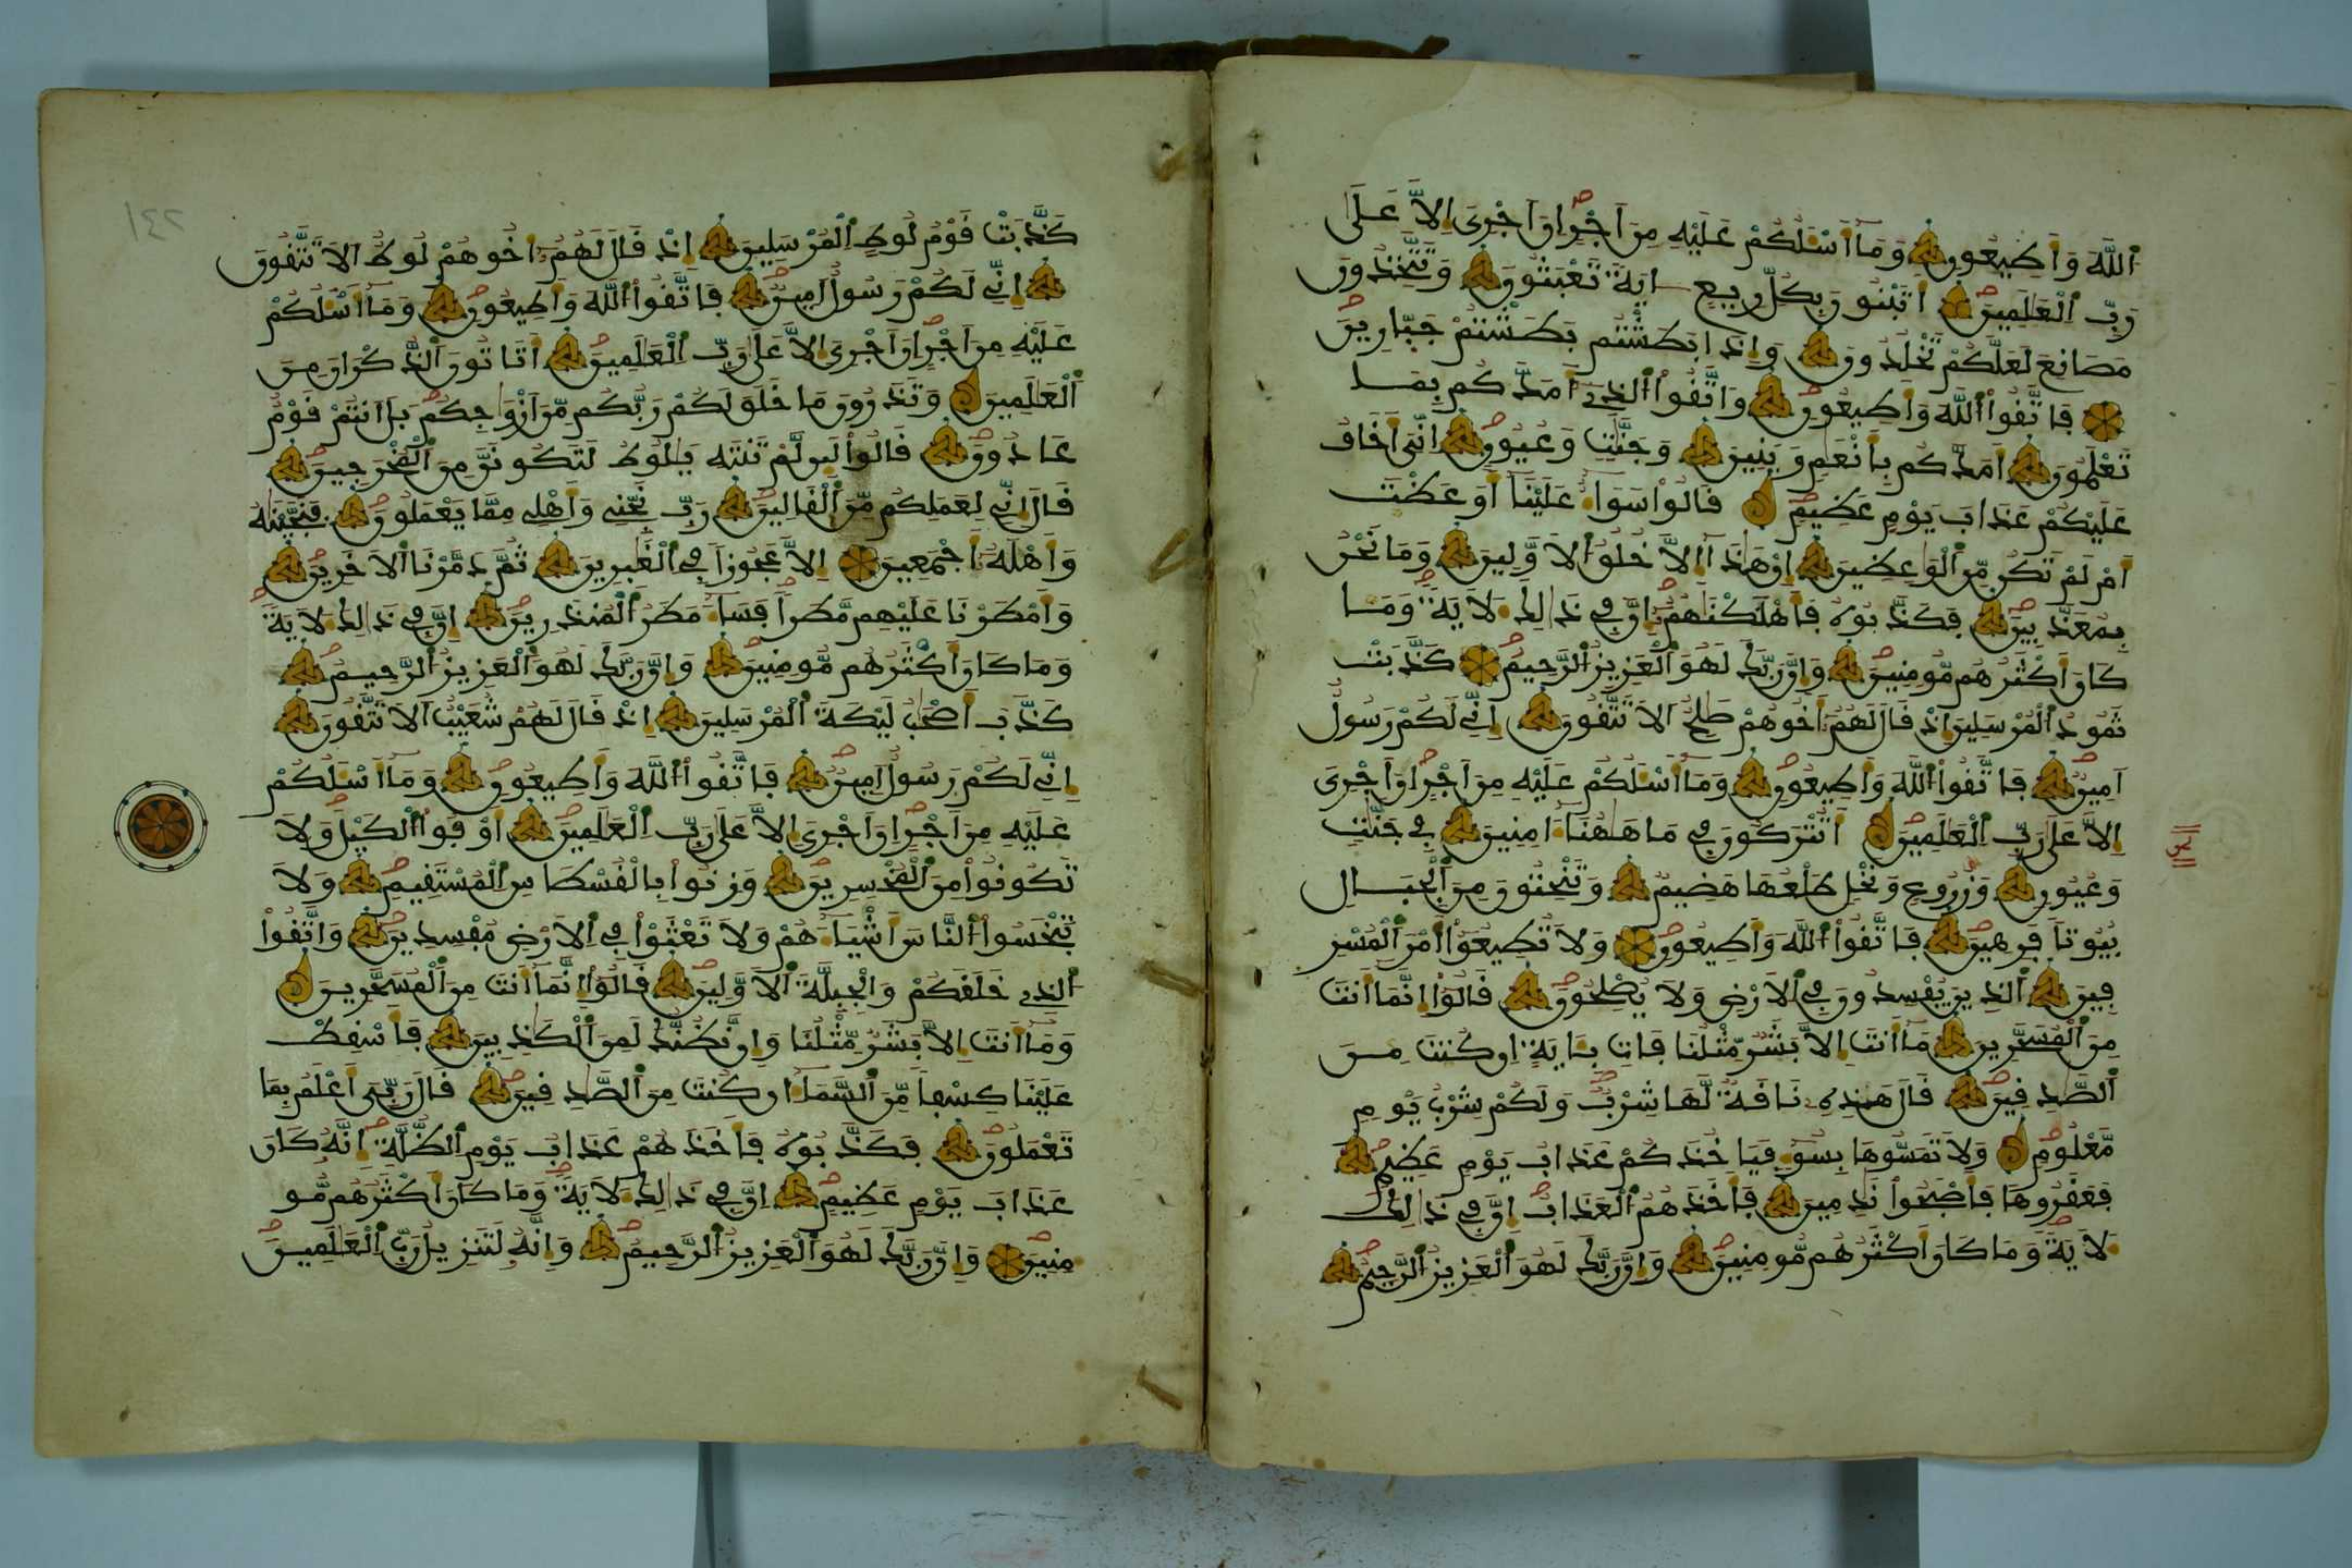 اَللَّهَ وَأَطِيعُونِ وَمَآ أَسْـَٔلُكُمْ عَلَيْهِ مِنَ اَجْرٍ اِنَ اَجْرِىَ إِلاَّ عَلَىٰ
رَبِّ اِلْعَٰلَمِينَ أَتَبْنُونَ بِكُلِّ رِيعٍ ءَايَةً تَعْبَثُونَ وَتَتَّخِذُونَ
مَصَانِعَ لَعَلَّكُمْ تَخْلُدُونَ وَإِذَا بَطَشْتُم بَطَشْتُمْ جَبّ۪ارِينَ
فَاتَّقُوا۟ اُللَّهَ وَأَطِيعُونِ وَاتَّقُوا۟ اُلذِےٓ أَمَدَّكُم بِمَا
تَعْلَمُونَ أَمَدَّكُم بِأَنْعَٰمٍ وَبَنِينَ وَجَنَّٰتٍ وَعُيُونٍ إِنِّىَ أَخَافُ
عَلَيْكُمْ عَذَابَ يَوْمٍ عَظِيمٍ قَالُوا۟ سَوَآءٌ عَلَيْنَآ أَوَعَظْتَ
أَمْ لَمْ تَكُن مِّنَ اَلْوَٰعِظِينَ إِنْ هَٰذَآ إِلاَّ خُلُقُ اُلَاوَّلِينَ وَمَا نَحْنُ
بِمُعَذَّبِينَ فَكَذَّبُوهُ فَأَهْلَكْنَٰهُمُۥٓ إِنَّ فِے ذَٰلِكَ لَأٓيَةً وَمَا
كَانَ أَكْثَرُهُم مُّومِنِينَ وَإِنَّ رَبَّكَ لَهُوَ اَلْعَزِيزُ اُلرَّحِيمُ كَذَّبَتْ
ثَمُودُ اُلْمُرْسَلِينَ إِذْ قَالَ لَهُمُۥٓ أَخُوهُمْ صَٰلِحٌ اَلَا تَتَّقُونَ إِنِّے لَكُمْ رَسُولٌ
اَمِينٌ فَاتَّقُوا۟ اُللَّهَ وَأَطِيعُونِ وَمَآ أَسْـَٔلُكُمْ عَلَيْهِ مِنَ اَجْرٍ اِنَ اَجْرِىَ
إِلاَّ عَلَىٰ رَبِّ اِلْعَٰلَمِينَ أَتُتْرَكُونَ فِے مَا هَٰهُنَآ ءَامِنِينَ فِے جَنَّٰتٍ
وَعُيُونٍ وَزُرُوعٍ وَنَخْلٍ طَلْعُهَا هَضِيمٌ وَتَنْحِتُونَ مِنَ اَلْجِبَالِ
بُيُوتاً فَرِهِينَ فَاتَّقُوا۟ اُللَّهَ وَأَطِيعُونِ وَلَا تُطِيعُوٓا۟ أَمْرَ اَلْمُسْرِ
فِينَ اَلذِينَ يُفْسِدُونَ فِے اِلَارْضِ وَلَا يُصْلِحُونَ قَالُوٓا۟ إِنَّمَآ أَنتَ
مِنَ اَلْمُسَحَّرِينَ مَآ أَنتَ إِلاَّ بَشَرٌ مِّثْلُنَا فَاتِ بِـَٔايَةٍ اِن كُنتَ مِنَ
اَلصَّٰدِقِينَ قَالَ هَٰذِهِۦ نَاقَةٌ لَّهَا شِرْبٌ وَلَكُمْ شِرْبُ يَوْمٍ
مَّعْلُومٍ وَلَا تَمَسُّوهَا بِسُوٓءٍ فَيَاخُذَكُمْ عَذَابُ يَوْمٍ عَظِيمٍ
فَعَقَرُوهَا فَأَصْبَحُوا۟ نَٰدِمِينَ فَأَخَذَهُمُ اُلْعَذَابُ إِنَّ فِے ذَٰلِكَ
لَأٓيَةً وَمَا كَانَ أَكْثَرُهُم مُّومِنِينَ وَإِنَّ رَبَّكَ لَهُوَ اَلْعَزِيزُ اُلرَّحِيمُ
١٤٢
كَذَّبَتْ قَوْمُ لُوطٍ اِلْمُرْسَلِينَ إِذْ قَالَ لَهُمُۥٓ أَخُوهُمْ لُوطٌ اَلَا تَتَّقُونَ
إِنِّے لَكُمْ رَسُولٌ اَمِينٌ فَاتَّقُوا۟ اُللَّهَ وَأَطِيعُونِ وَمَآ أَسْـَٔلُكُمْ
عَلَيْهِ مِنَ اَجْرٍ اِنَ اَجْرِىَ إِلاَّ عَلَىٰ رَبِّ اِلْعَٰلَمِينَ أَتَاتُونَ اَلذُّكْرَانَ مِنَ
اَلْعَٰلَمِينَ وَتَذَرُونَ مَا خَلَقَ لَكُمْ رَبُّكُم مِّنَ اَزْوَٰجِكُم بَلَ اَنتُمْ قَوْمٌ
عَادُونَ قَالُوا۟ لَئِن لَّمْ تَنتَهِ يَٰلُوطُ لَتَكُونَنَّ مِنَ اَلْمُخْرَجِينَ
قَالَ إِنِّے لِعَمَلِكُم مِّنَ اَلْقَالِينَ رَبِّ نَجِّنِے وَأَهْلِے مِمَّا يَعْمَلُونَ فَنَجَّيْنَٰهُ
وَأَهْلَهُۥٓ أَجْمَعِينَ إِلاَّ عَجُوزاً فِے اِلْغَٰبِرِينَ ثُمَّ دَمَّرْنَا اَلَاخَرِينَ
وَأَمْطَرْنَا عَلَيْهِم مَّطَراً فَسَآءَ مَطَرُ اُلْمُنذَرِينَ إِنَّ فِے ذَٰلِكَ لَأٓيَةً
وَمَا كَانَ أَكْثَرُهُم مُّومِنِينَ وَإِنَّ رَبَّكَ لَهُوَ اَلْعَزِيزُ اُلرَّحِيمُ
كَذَّبَ أَصْحَٰبُ لَيْكَةَ اَلْمُرْسَلِينَ إِذْ قَالَ لَهُمْ شُعَيْبٌ اَلَا تَتَّقُونَ
إِنِّے لَكُمْ رَسُولٌ اَمِينٌ فَاتَّقُوا۟ اُللَّهَ وَأَطِيعُونِ وَمَآ أَسْـَٔلُكُمْ
عَلَيْهِ مِنَ اَجْرٍ اِنَ اَجْرِىَ إِلاَّ عَلَىٰ رَبِّ اِلْعَٰلَمِينَ أَوْفُوا۟ اُلْكَيْلَ وَلَا
تَكُونُوا۟ مِنَ اَلْمُخْسِرِينَ وَزِنُوا۟ بِالْقُسْطَاسِ اِلْمُسْتَقِيمِ وَلَا
تَبْخَسُوا۟ اُلنَّاسَ أَشْيَآءَهُمْ وَلَا تَعْثَوْا۟ فِے اِلَارْضِ مُفْسِدِينَ وَاتَّقُوا۟
اُلذِے خَلَقَكُمْ وَالْجِبِلَّةَ اَلَاوَّلِينَ قَالُوٓا۟ إِنَّمَآ أَنتَ مِنَ اَلْمُسَحَّرِينَ
وَمَآ أَنتَ إِلاَّ بَشَرٌ مِّثْلُنَا وَإِن نَّظُنُّكَ لَمِنَ اَلْكَٰذِبِينَ فَأَسْقِطْ
عَلَيْنَا كِسْفاً مِّنَ اَلسَّمَآءِ اِن كُنتَ مِنَ اَلصَّٰدِقِينَ قَالَ رَبِّىَ أَعْلَمُ بِمَا
تَعْمَلُونَ فَكَذَّبُوهُ فَأَخَذَهُمْ عَذَابُ يَوْمِ اِلظُّلَّةِ إِنَّهُۥ كَانَ
عَذَابَ يَوْمٍ عَظِيمٍ إِنَّ فِے ذَٰلِكَ لَأٓيَةً وَمَا كَانَ أَكْثَرُهُم مُّو
مِنِينَ وَإِنَّ رَبَّكَ لَهُوَ اَلْعَزِيزُ اُلرَّحِيمُ وَإِنَّهُۥ لَتَنزِيلُ رَبِّ اِلْعَٰلَمِينَ